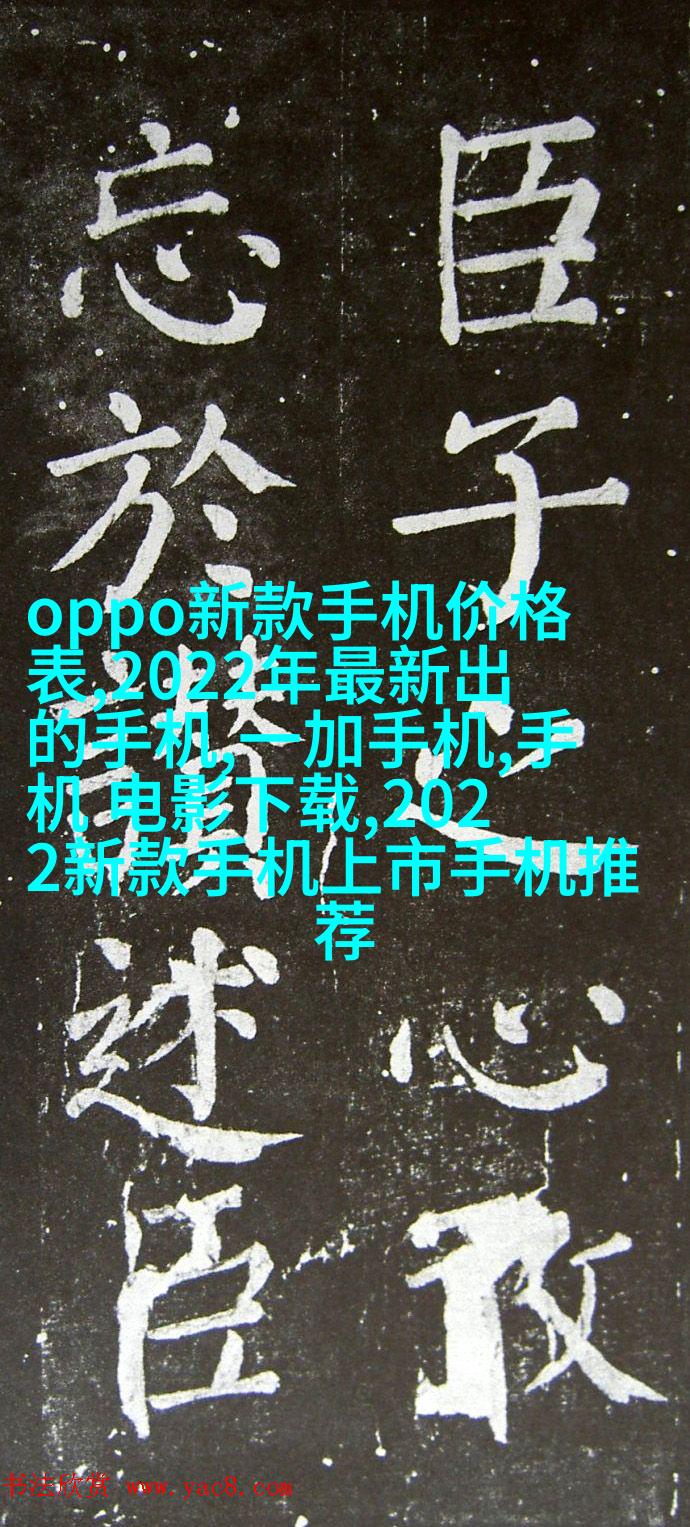 臣子之心敢
忘於讚述臣
oppo新款手机价格
表,2022年最新出
的手机,一加手机,手
机 电影下载,202
2新款手机上市手机推
荐
书法欣赏 www.yac8.com